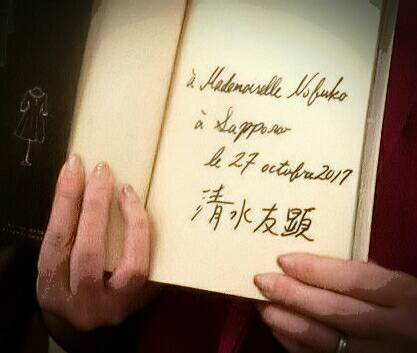 à Mademoiselle Nobuko
à Sapporo
le 27 octobre 2017
清水友顕